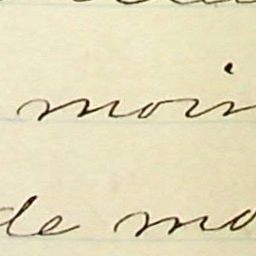 moin
de mo